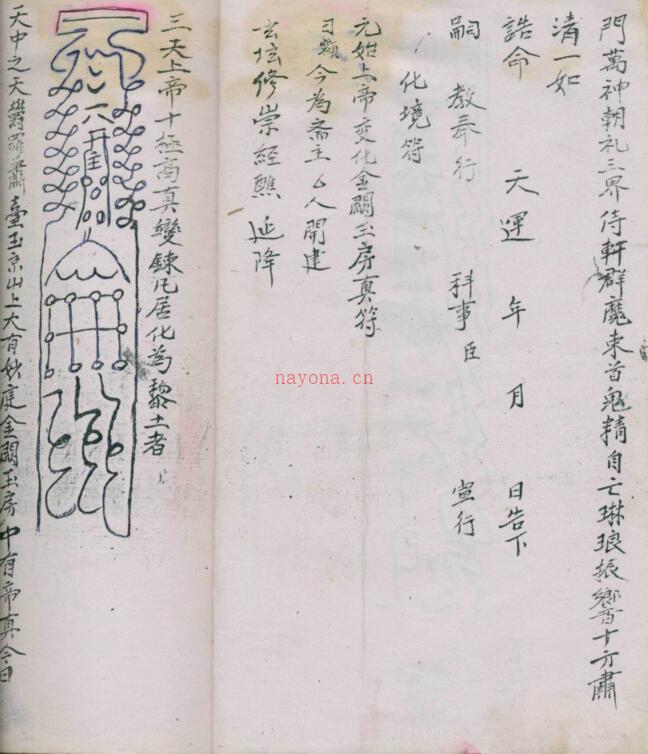 門萬神朝礼三界侍軒群魔束首鬼精自亡琳琅振響十方肅
清一如
誥命 天運 年 月 日告下
嗣 教奉行 科事臣 宣行
化境符
元始上帝变化金闕玉房真符
今為斋主厶人開建
玄坛修崇経醮 延降
三天上帝十極高真變鍊凡居化為黎土者
天中之天欝羅蕭臺玉京山上大有妙庭金闕玉房中有帝真
nayona.cn